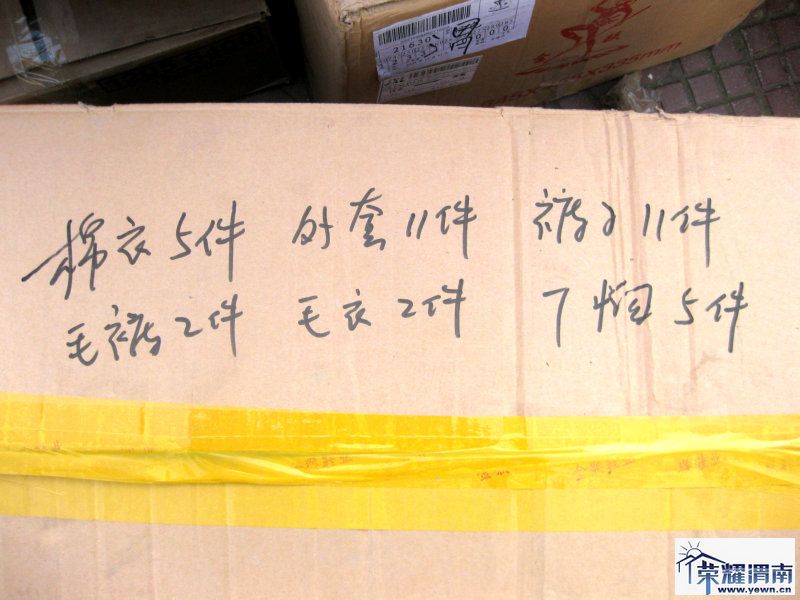 21630
335mm
棉衣5件 外套11件 裤子11件
毛裤2件 毛衣2件 T恤5件
荣耀渭南
www.yewn.cn